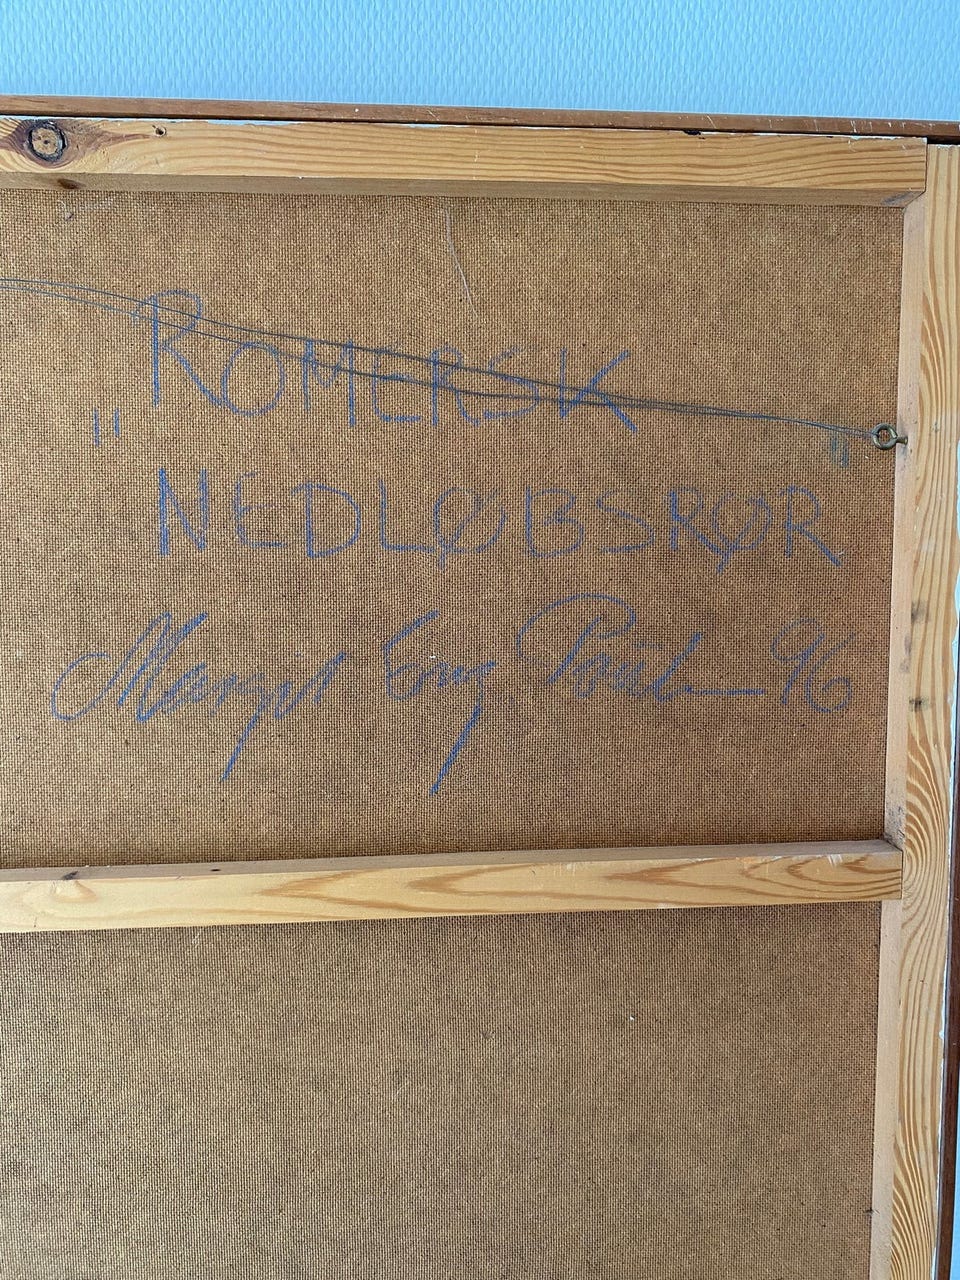 "ROMERSK
NEDLØBSRØR"
Margit Eng 96